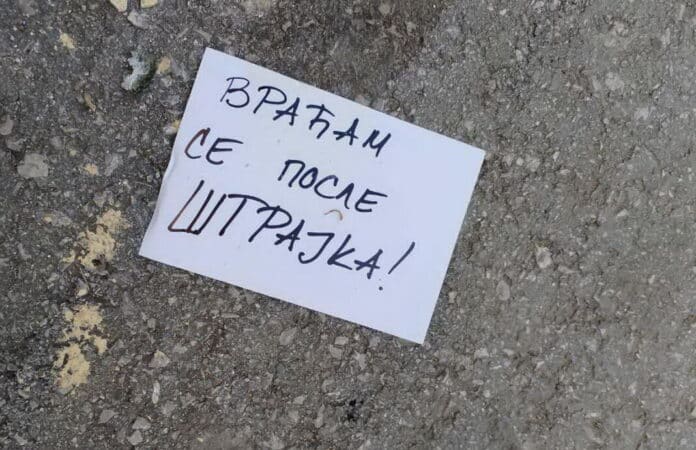 ВРАЋАМ
СЕ ПОСЛЕ
ШТРАЈКА!